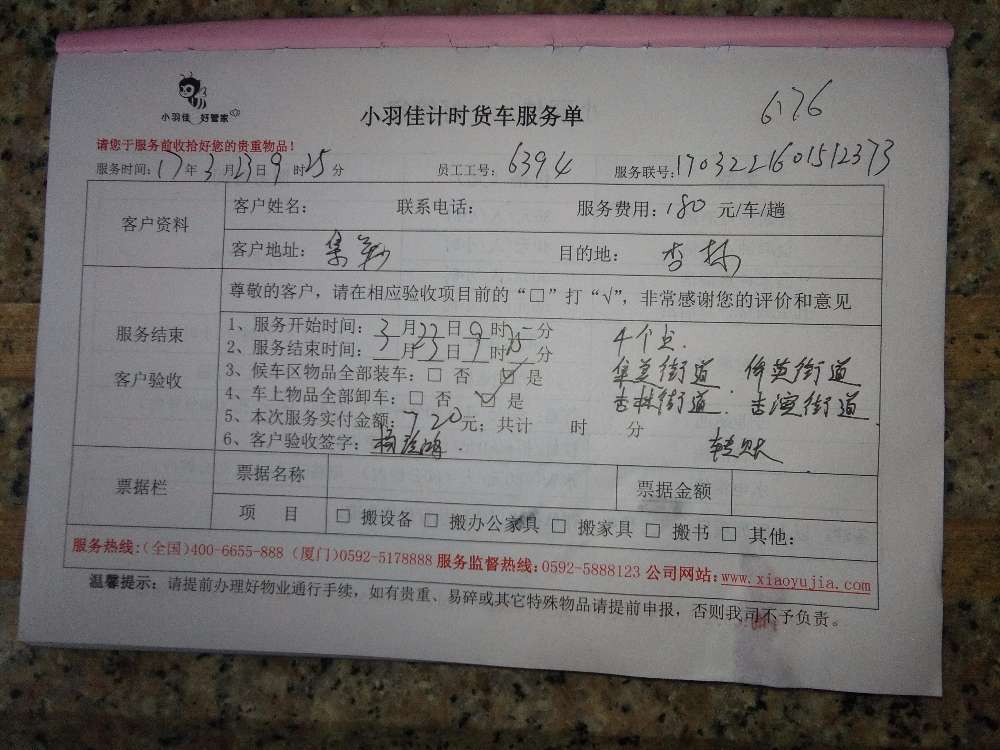 小羽佳 好管家
小羽佳计时货车服务单
6176
请您于服务前收拾好您的贵重物品！
服务时间：17年3月23日9时25分 员工工号：6394 服务联号：1703221601512373
客户资料
客户姓名： 联系电话： 服务费用：180 元/车/趟
客户地址：集美 目的地：杏林
服务结束
客户验收
尊敬的客户，请在相应验收项目前的“□”打“√”，非常感谢您的评价和意见
1、服务开始时间：3月23日9时25分 4个点.
2、服务结束时间： 月23日9时 分
3、候车区物品全部装车：□ 否 ☑ 是 集美街道 侨英街道
4、车上物品全部卸车：□ 否 ☑ 是 杏林街道. 杏滨街道.
5、本次服务实付金额：720元；共计 时 分
6、客户验收签字： 转账
票据栏
票据名称 票据金额
项 目 □ 搬设备 □ 搬办公家具 □ 搬家具 □ 搬书 □ 其他：
服务热线：（全国）400-6655-888（厦门）0592-5178888 服务监督热线：0592-5888123 公司网站：www.xiaoyujia.com
温馨提示：请提前办理好物业通行手续，如有贵重、易碎或其它特殊物品请提前申报，否则我司不予负责。